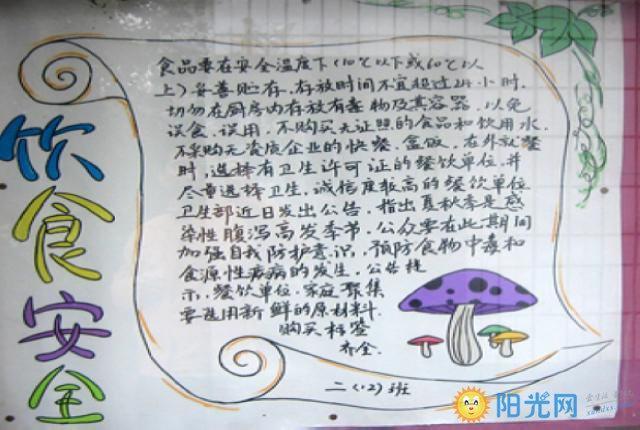 饮食安全
食品要在安全温度下(10℃以下或60℃以
上)妥善贮存,存放时间不宜超过24小时.
切勿在厨房内存放有毒物及其容器.以免
误食、误用.不购买无证照的食品和饮用水.
不采购无资质企业的快餐、盒饭,在外就餐
时,选择有卫生许可证的餐饮单位.并
尽量选择卫生,诚信度较高的餐饮单位.
卫生部近日发出公告,指出夏秋季是感
染性腹泻高发季节,公众要在此期间
加强自我防护意识,预防食物中毒和
食源性疾病的发生,公告提
示,餐饮单位,家庭聚集
要选用新鲜的原材料.
购买标签
齐全.
二(12)班
阳光网